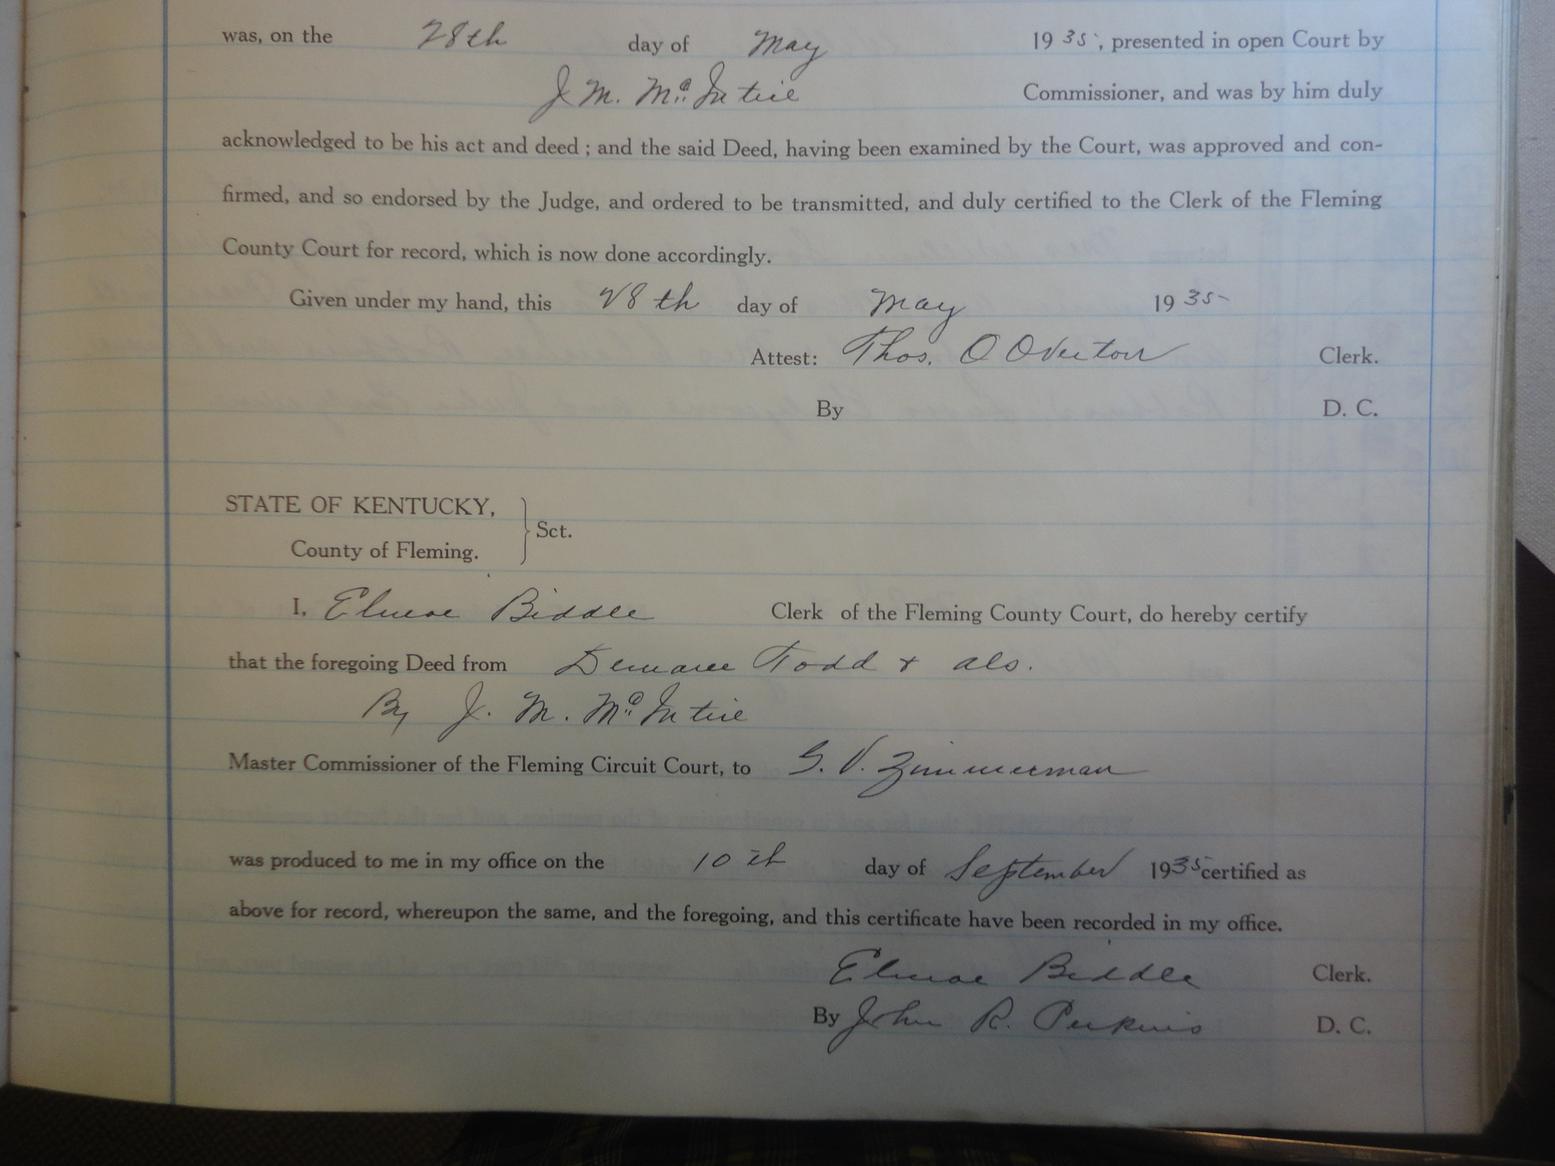 was, on the 28th day of May 1935, presented in open Court by
J. M. McIntire Commissioner, and was by him duly
acknowledged to be his act and deed; and the said Deed, having been examined by the Court, was approved and con-
firmed, and so endorsed by the Judge, and ordered to be transmitted, and duly certified to the Clerk of the Fleming
County Court for record, which is now done accordingly.
Given under my hand, this 28th day of May 1935
Attest: Thos. O Overton Clerk.
By D. C.
STATE OF KENTUCKY,
County of Fleming. } Sct.
I, Elmoe Biddle Clerk of the Fleming County Court, do hereby certify
that the foregoing Deed from Demaree Todd & als.
By J. M. McIntire
Master Commissioner of the Fleming Circuit Court, to S. V. Zimmerman
was produced to me in my office on the 10th day of September 1935 certified as
above for record, whereupon the same, and the foregoing, and this certificate have been recorded in my office.
Elmoe Biddle Clerk.
By John R. Perkins D. C.